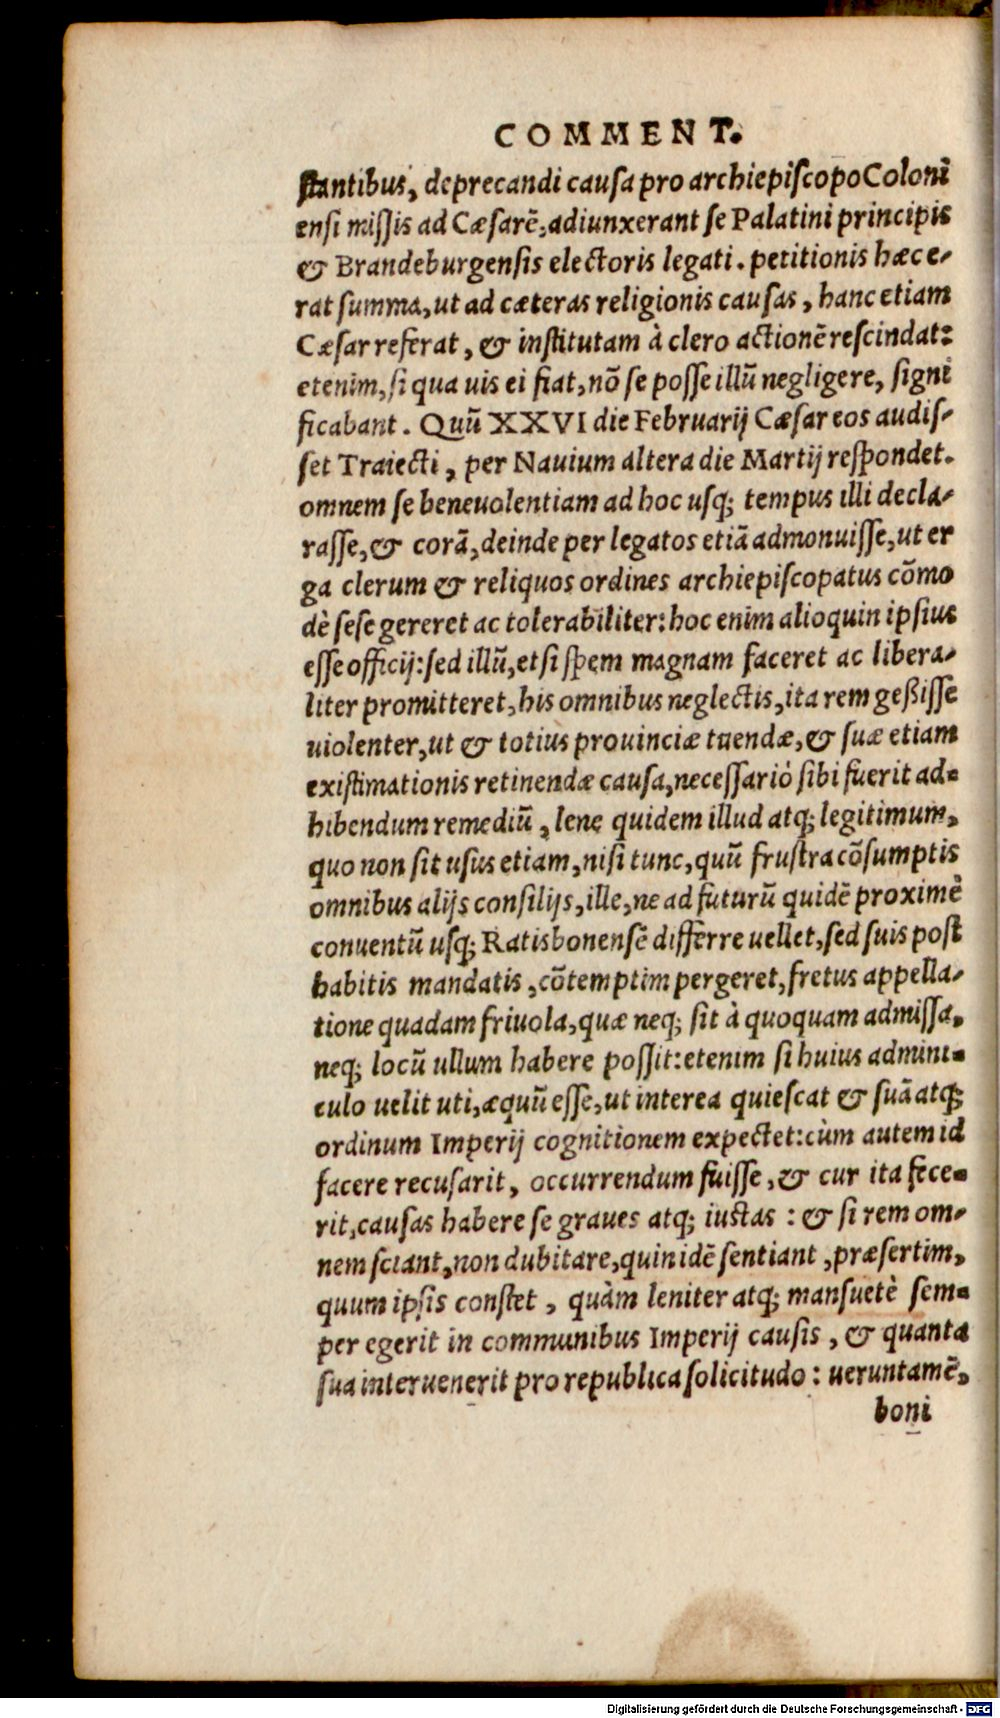 COMMENT.
stantibus, deprecandi causa pro archiepiscopo Coloni
ensi missis ad Cæsarẽ, adiunxerant se Palatini principis
& Brandeburgensis electoris legati. petitionis hæc e-
rat summa, ut ad cæteras religionis causas, hanc etiam
Cæsar referat, & institutam à clero actionẽ rescindat:
etenim, si qua uis ei fiat, nõ se posse illũ negligere, signi
ficabant. Quũ XXVI die Februarij Cæsar eos audis-
set Traiecti, per Nauium altera die Martij respondet.
omnem se beneuolentiam ad hoc usq; tempus illi decla-
rasse, & corã, deinde per legatos etiã admonuisse, ut er
ga clerum & reliquos ordines archiepiscopatus cõmo
dè sese gereret ac tolerabiliter: hoc enim alioquin ipsius
esse officij: sed illũ, etsi spem magnam faceret ac libera-
liter promitteret, his omnibus neglectis, ita rem geßisse
uiolenter, ut & totius prouinciæ tuendæ, & suæ etiam
existimationis retinendæ causa, necessariò sibi fuerit ad-
hibendum remediũ, lene quidem illud atq; legitimum,
quo non sit usus etiam, nisi tunc, quũ frustra cõsumptis
omnibus alijs consilijs, ille, ne ad futurũ quidẽ proximè
conuentũ usq; Ratisbonensẽ differre uellet, sed suis post
habitis mandatis, cõtemptim pergeret, fretus appella-
tione quadam friuola, quæ neq; sit à quoquam admissa,
neq; locũ ullum habere possit: etenim si huius admini-
culo uelit uti, æquũ esse, ut interea quiescat & suã atq;
ordinum Imperij cognitionem expectet: cùm autem id
facere recusarit, occurrendum fuisse, & cur ita fece-
rit, causas habere se graues atq; iustas: & si rem om-
nem sciant, non dubitare, quin idẽ sentiant, præsertim,
quum ipsis constet, quàm leniter atq; mansuetè sem-
per egerit in communibus Imperij causis, & quanta
sua interuenerit pro republica solicitudo: ueruntamẽ,
boni
Digitalisierung gefördert durch die Deutsche Forschungsgemeinschaft - DFG